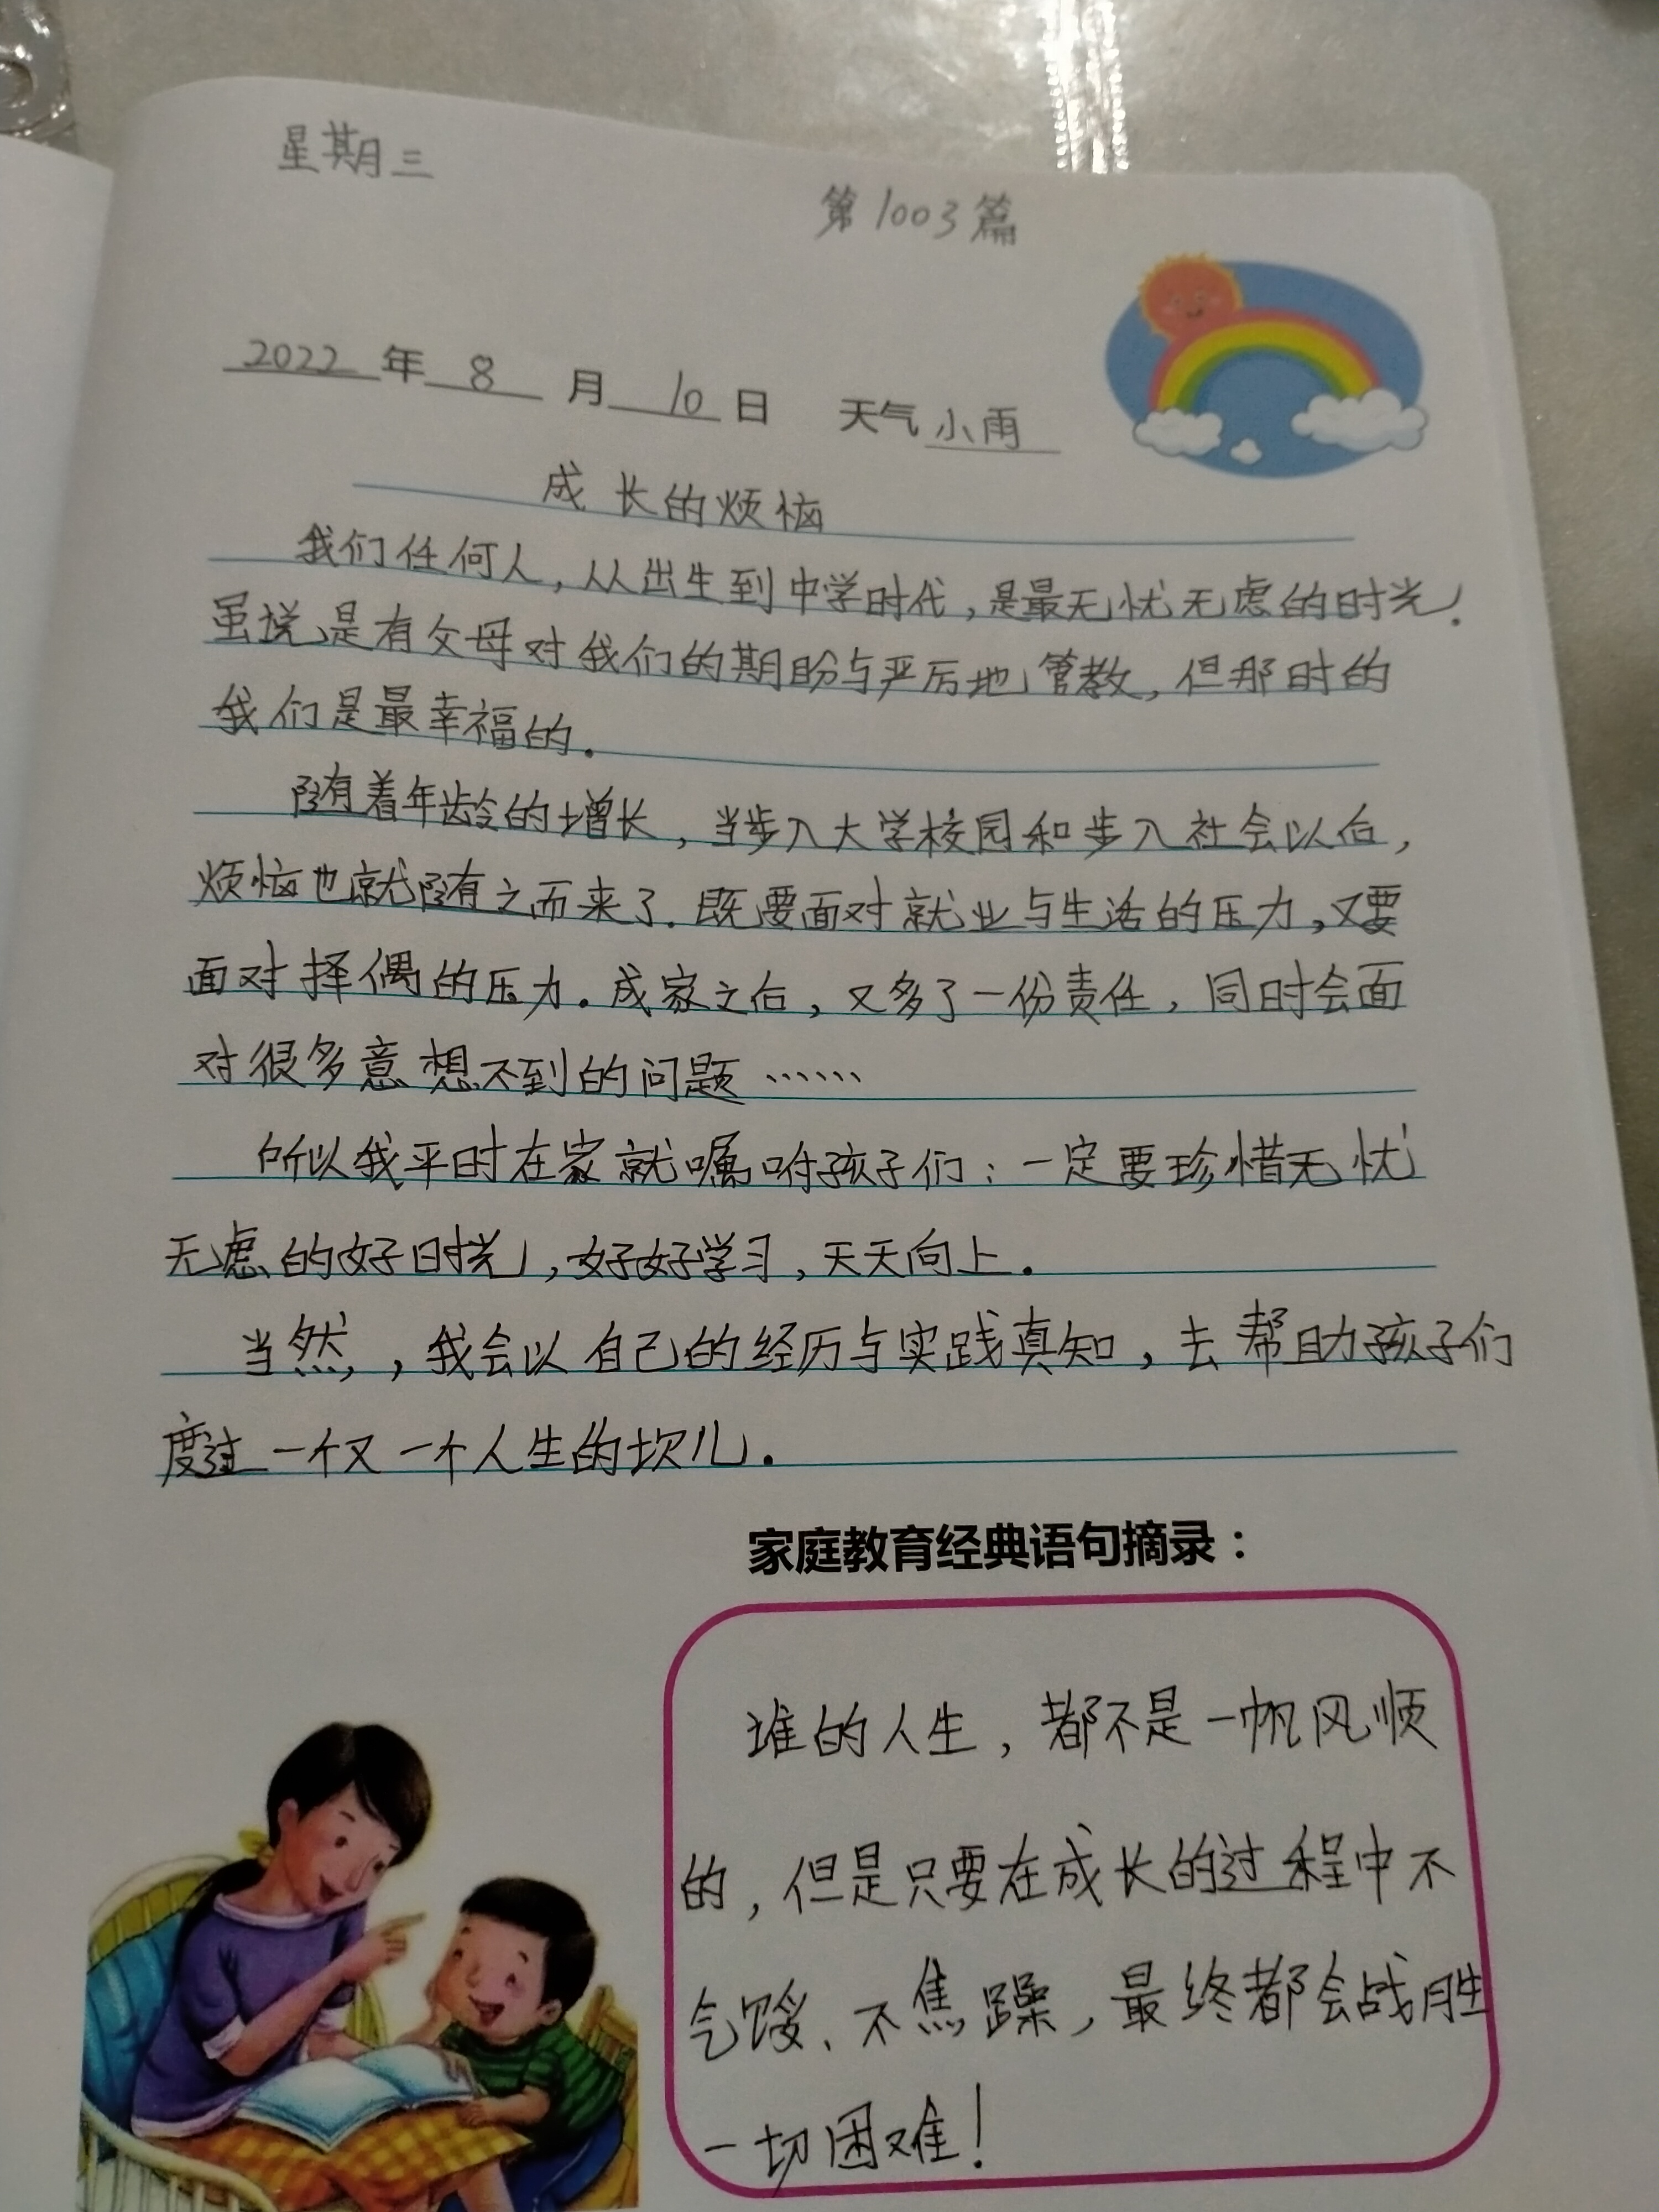 星期三
第1003篇
2022年8月10日 天气小雨
成长的烦恼
我们任何人，从出生到中学时代，是最无忧无虑的时光.
虽说是有父母对我们的期盼与严厉地管教，但那时的
我们是最幸福的.
随着年龄的增长，当步入大学校园和步入社会以后，
烦恼也就随之而来了.既要面对就业与生活的压力，又要
面对择偶的压力.成家之后，又多了一份责任，同时会面
对很多意想不到的问题……
所以我平时在家就嘱咐孩子们：一定要珍惜无忧
无虑的好时光，好好学习，天天向上.
当然，我会以自己的经历与实践真知，去帮助孩子们
度过一个又一个人生的坎儿.
家庭教育经典语句摘录：
谁的人生，都不是一帆风顺
的，但是只要在成长的过程中不
气馁、不焦躁，最终都会战胜
一切困难！